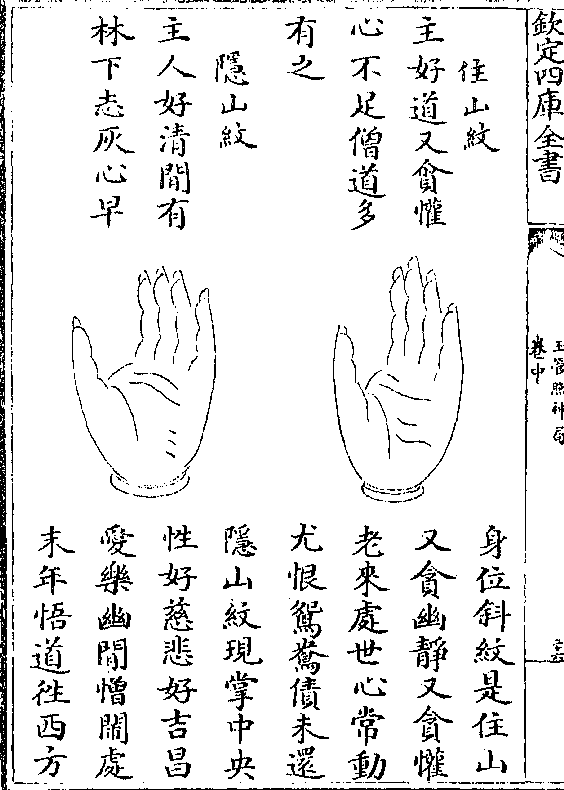 欽定四庫全書
玉管照神局
卷中
住山紋
主好道又貪懽
心不足僧道多
有之
身位斜紋是住山
又貪幽靜又貪懽
老來處世心常動
尤恨鴛鴦債未還
隱山紋
主人好清閒有
林下志灰心早
隱山紋現掌中央
性好慈悲好吉昌
愛樂幽閒憎閙處
末年悟道徃西方